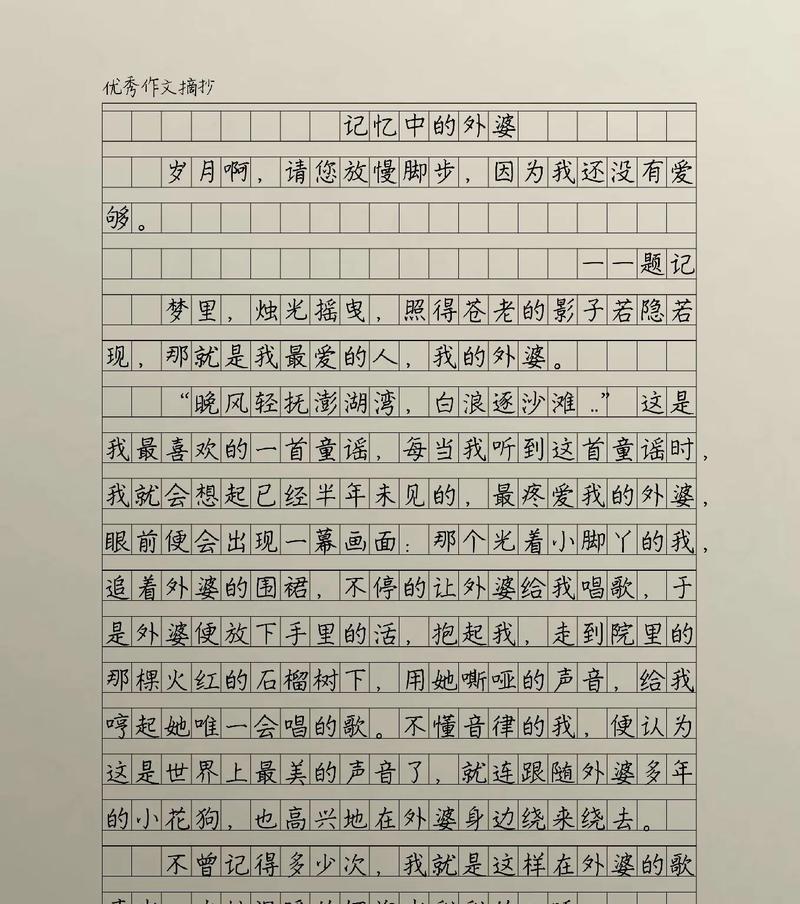 优秀作文摘抄
记忆中的外婆
岁月啊，请您放慢脚步，因为我还没有爱
够。
——题记
梦里，烛光摇曳，照得苍老的影子若隐若
现，那就是我最爱的人，我的外婆。
“晚风轻抚澎湖湾，白浪逐沙滩..”这是
我最喜欢的一首童谣，每当我听到这首童谣时，
我就会想起已经半年未见的，最疼爱我的外婆，
眼前便会出现一幕画面：那个光着小脚丫的我，
追着外婆的围裙，不停的让外婆给我唱歌，于
是外婆便放下手里的活，抱起我，走到院里的
那棵火红的石榴树下，用她嘶哑的声音，给我
哼起她唯一会唱的歌。不懂音律的我，便认为
这是世界上最美的声音了，就连跟随外婆多年
的小花狗，也高兴地在外婆身边绕来绕去。
不曾记得多少次，我就是这样在外婆的歌